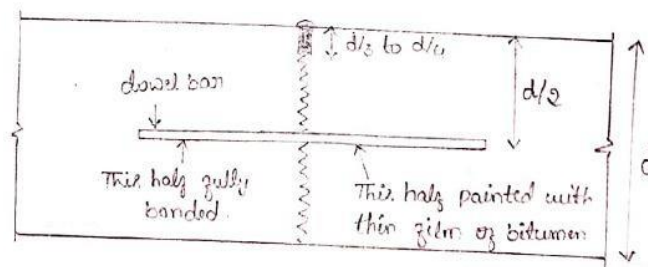 d/3 to d/4
d/2
dowel bar
d
This half fully
bonded.
This half painted with
thin film of bitumen